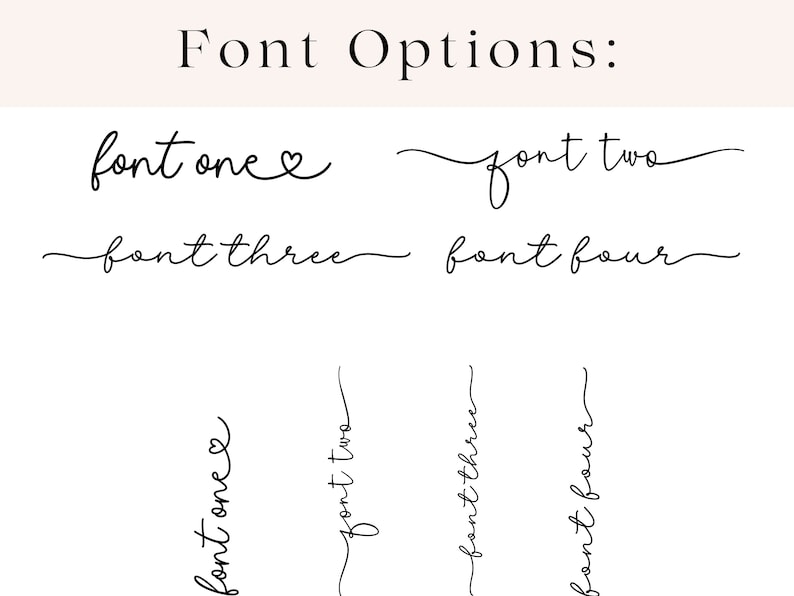 Font Options:
font one
font two
font three
font four
font one
font two
font three
font four